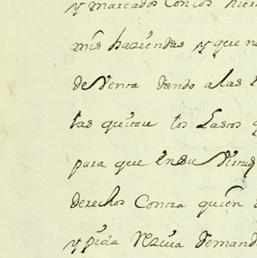 y marcados con los hier
mis haziendas y que n
de Venta dando a las
tas quitan los
para que en su Virtud
derechos Contra quien
y pida demand